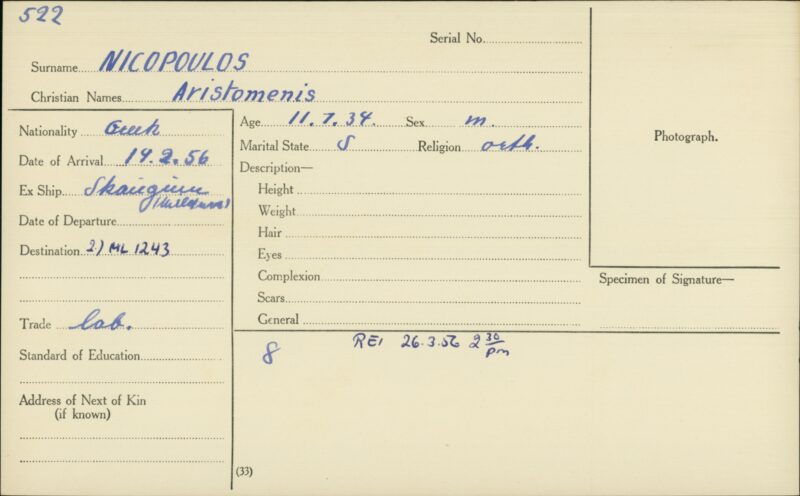 522
Serial No.
Surname NICOPOULOS
Christian Names Aristomenis
Nationality Greek
Date of Arrival 14.2.56
Ex Ship Skaugum
Date of Departure
Destination 2) ML 1243
Trade lab.
Standard of Education
Address of Next of Kin
(if known)
Age 11.7.34. Sex m.
Marital State S Religion orth.
Description—
Height
Weight
Hair
Eyes
Complexion
Scars
General
8 REI 26.3.56 2 30
pm
(33)
Photograph.
Specimen of Signature—